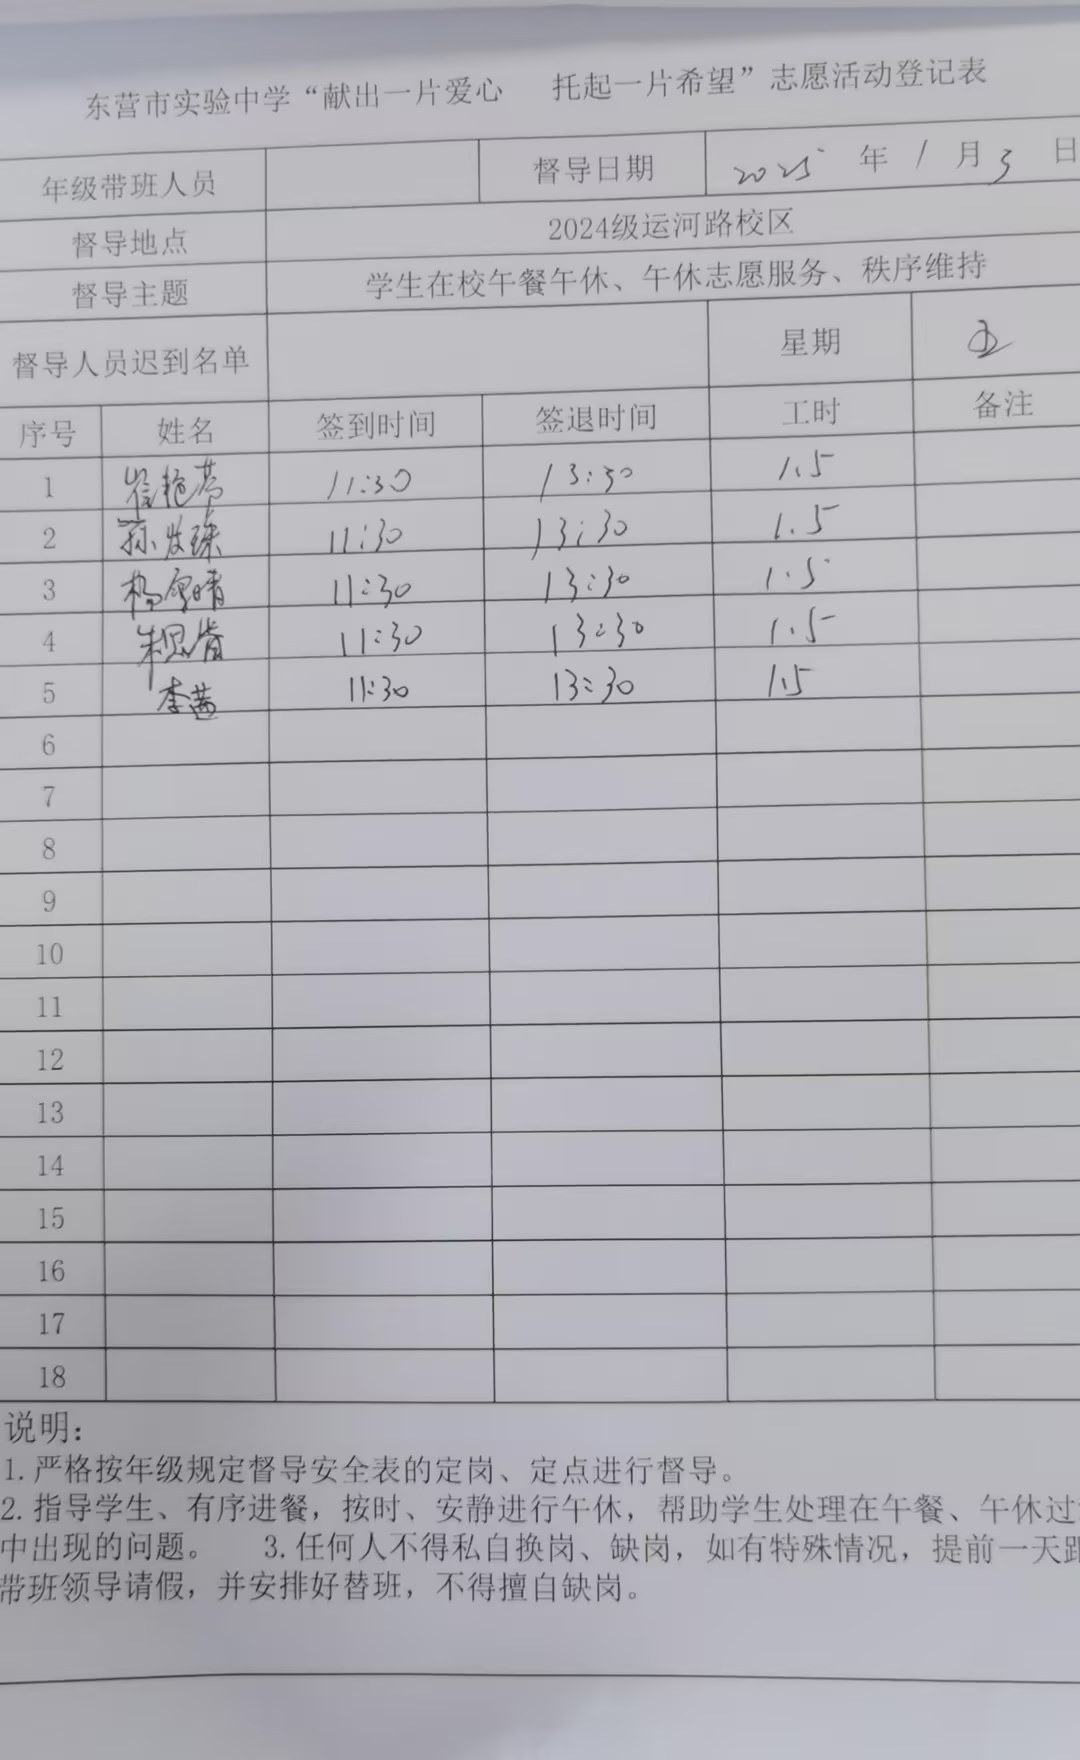 东营市实验中学“献出一片爱心 托起一片希望”志愿活动登记表
年级带班人员 督导日期 2025 年 1 月 3 日
督导地点 2024级运河路校区
督导主题 学生在校午餐午休、午休志愿服务、秩序维持
督导人员迟到名单 星期 五
序号 姓名 签到时间 签退时间 工时 备注
1 11:30 13:30 1.5
2 11:30 13:30 1.5
3 11:30 13:30 1.5
4 11:30 13:30 1.5
5 李茜 11:30 13:30 1.5
6
7
8
9
10
11
12
13
14
15
16
17
18
说明：
1.严格按年级规定督导安全表的定岗、定点进行督导。
2.指导学生、有序进餐，按时、安静进行午休，帮助学生处理在午餐、午休过
中出现的问题。 3.任何人不得私自换岗、缺岗，如有特殊情况，提前一天跟
带班领导请假，并安排好替班，不得擅自缺岗。